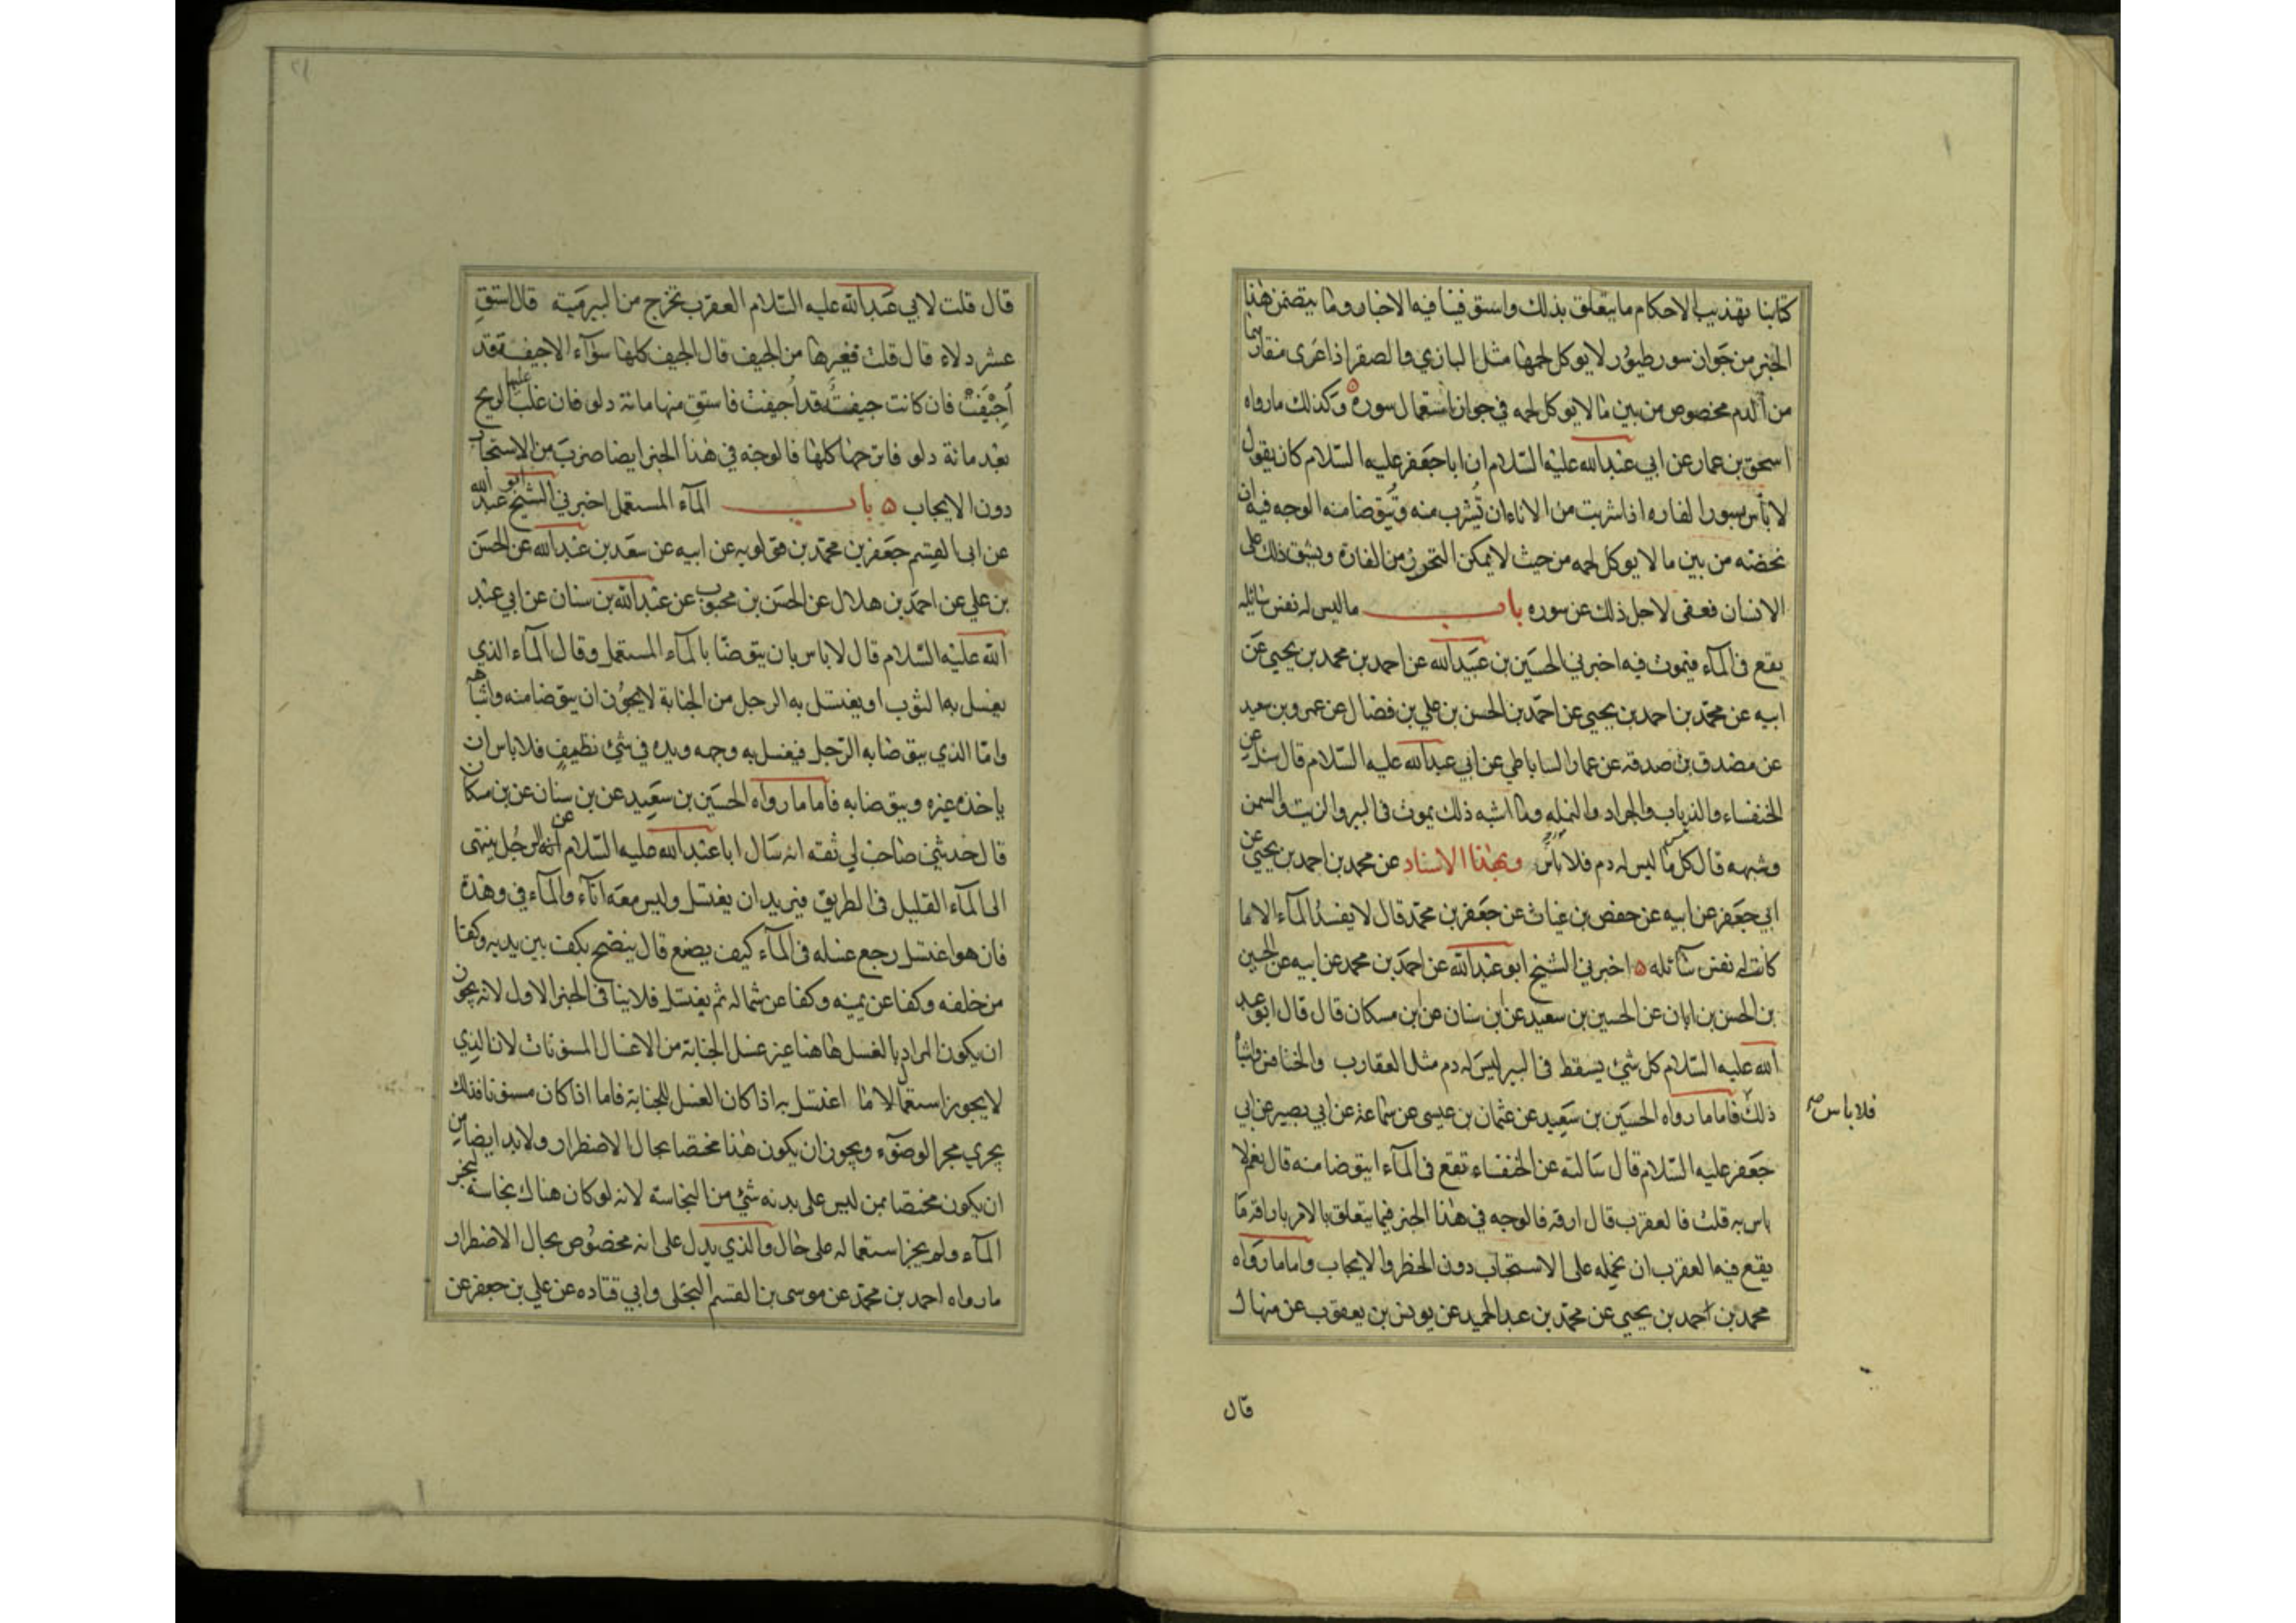 كتابنا تهذيب الاحكام ما يتعلق بذلك واستوفينا فيه الاخبار وما يتضمن هذا
الخبر من جواز سور طيور لا يوكل لحمها مثل البازي والصقر اذا عرى منقارهما
من الدم مخصوص من بين ما لا يوكل لحمه في جواز استعمال سوره وكذلك ما رواه
اسحق بن عمار عن ابي عبد الله عليه السلام ان ابا جعفر عليه السلام كان يقول
لا باس بسور الفاره اذا شربت من الاناء ان تشرب منه وتتوضا منه الوجه فيه ان
نخصه من بين ما لا يوكل لحمه من حيث لا يمكن التحرز من الفارة ويشق ذلك على
الانسان فعفى لاجل ذلك عن سوره باب ما ليس له نفس سائله
يقع في المآء فيموت فيه اخبرني الحسين بن عبيد الله عن احمد بن محمد بن يحيى عن
ابيه عن محمد بن احمد بن يحيى عن احمد بن الحسن بن علي بن فضال عن عمرو بن سعيد
عن مصدق بن صدقة عن عمار الساباطي عن ابي عبد الله عليه السلام قال سئل عن
الخنفساء والذباب والجراد والنمله وما اشبه ذلك يموت في البير والزيت والسمن
وشبهه قال كل ما ليس له دم فلا باس وبهذا الاسناد عن محمد بن احمد بن يحيى عن
ابي جعفر عن ابيه عن حفص بن غياث عن جعفر بن محمد قال لا يفسد المآء الا ما
كانت له نفس سآئله ۵ اخبرني الشيخ ابو عبد الله عن احمد بن محمد عن ابيه عن الحسين
بن الحسن بن ابان عن الحسين بن سعيد عن ابن سنان عن ابن مسكان قال قال ابو عبد
الله عليه السلام كل شئ يسقط في البير ليس له دم مثل العقارب والخنافس واشباه
ذلك فاما ما رواه الحسين بن سعيد عن عثمان بن عيسى عن سماعة عن ابي بصير عن ابي
فلا باس صح
جعفر عليه السلام قال سالته عن الخنفساء تقع في المآء ايتوضا منه قال نعم لا
باس به قلت فالعقرب قال ارقه فالوجه في هذا الخبر فيما يتعلق بالامر باراقة ما
يقع فيه العقرب ان نحمله على الاستحباب دون الحظر والايجاب واما ما رواه
محمد بن احمد بن يحيى عن محمد بن عبد الحميد عن يونس بن يعقوب عن منهال
قال
قال قلت لابي عبد الله عليه السلام العقرب تخرج من البير ميتة قال استق
عشر دلاء قال قلت فغيرها من الجيف قال الجيف كلها سوآء الا جيفة قد
اجيفت فان كانت جيفة قد اجيفت فاستق منها مائة دلو فان غلب عليها الريح
بعد مائة دلو فانزحها كلها فالوجه في هذا الخبر ايضا ضرب من الاستحباب
دون الايجاب ۵ باب المآء المستعمل اخبرني الشيخ ابو عبد الله
عن ابي القسم جعفر بن محمد بن قولويه عن ابيه عن سعد بن عبد الله عن الحسن
بن علي عن احمد بن هلال عن الحسن بن محبوب عن عبد الله بن سنان عن ابي عبد
الله عليه السلام قال لا باس بان يتوضا بالمآء المستعمل وقال المآء الذي
يغسل به الثوب او يغتسل به الرجل من الجنابة لا يجوز ان يتوضا منه واشباهه
واما الذي يتوضا به الرجل فيغسل به وجهه ويده في شئ نظيف فلا باس ان
ياخذه غيره ويتوضا به فاما ما رواه الحسين بن سعيد عن بن سنان عن بن مسكان
قال حدثني صاحب لي ثقه انه سال ابا عبد الله عليه السلام عن الرجل ينتهى
الى المآء القليل في الطريق فيريد ان يغتسل وليس معه انآء والمآء في وهدة
فان هو اغتسل رجع غسله في المآء كيف يصنع قال ينضح بكف بين يديه وكفا
من خلفه وكفا عن يمينه وكفا عن شماله ثم يغتسل فلا ينافي الخبر الاول لانه يجوز ان
ان يكون المراد بالغسل هاهنا غير غسل الجنابة من الاغسال المسنونات لان الذي
لا يجوز استعماله الا ما اغتسل به اذا كان الغسل للجنابة فاما اذا كان مسنونا فذلك
يجري مجرا الوضوء ويجوز ان يكون هذا مختصا بحال الاضطرار ولا بد ايضا من
ان يكون مختصا بمن ليس على بدنه شئ من النجاسة لانه لو كان هناك نجاسة لنجس
المآء ولم يجز استعماله على حال والذي يدل على انه مخصوص بحال الاضطرار
ما رواه احمد بن محمد عن موسى بن القسم البجلى وابي قتاده عن علي بن جعفر عن